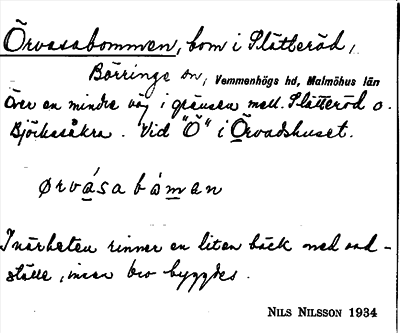 Örvasabommen, bom i Slätteröd,
Börringe sn, Vemmenhögs hd, Malmöhus län
över en mindre väg i gränsen mell. Slätteröd o.
Björkesåkra. Vid "Ö" i Örvadshuset.
ørvásabåman
I närheten rinner en liten bäck med vad-
ställe, innan bro byggdes.
NILS NILSSON 1934